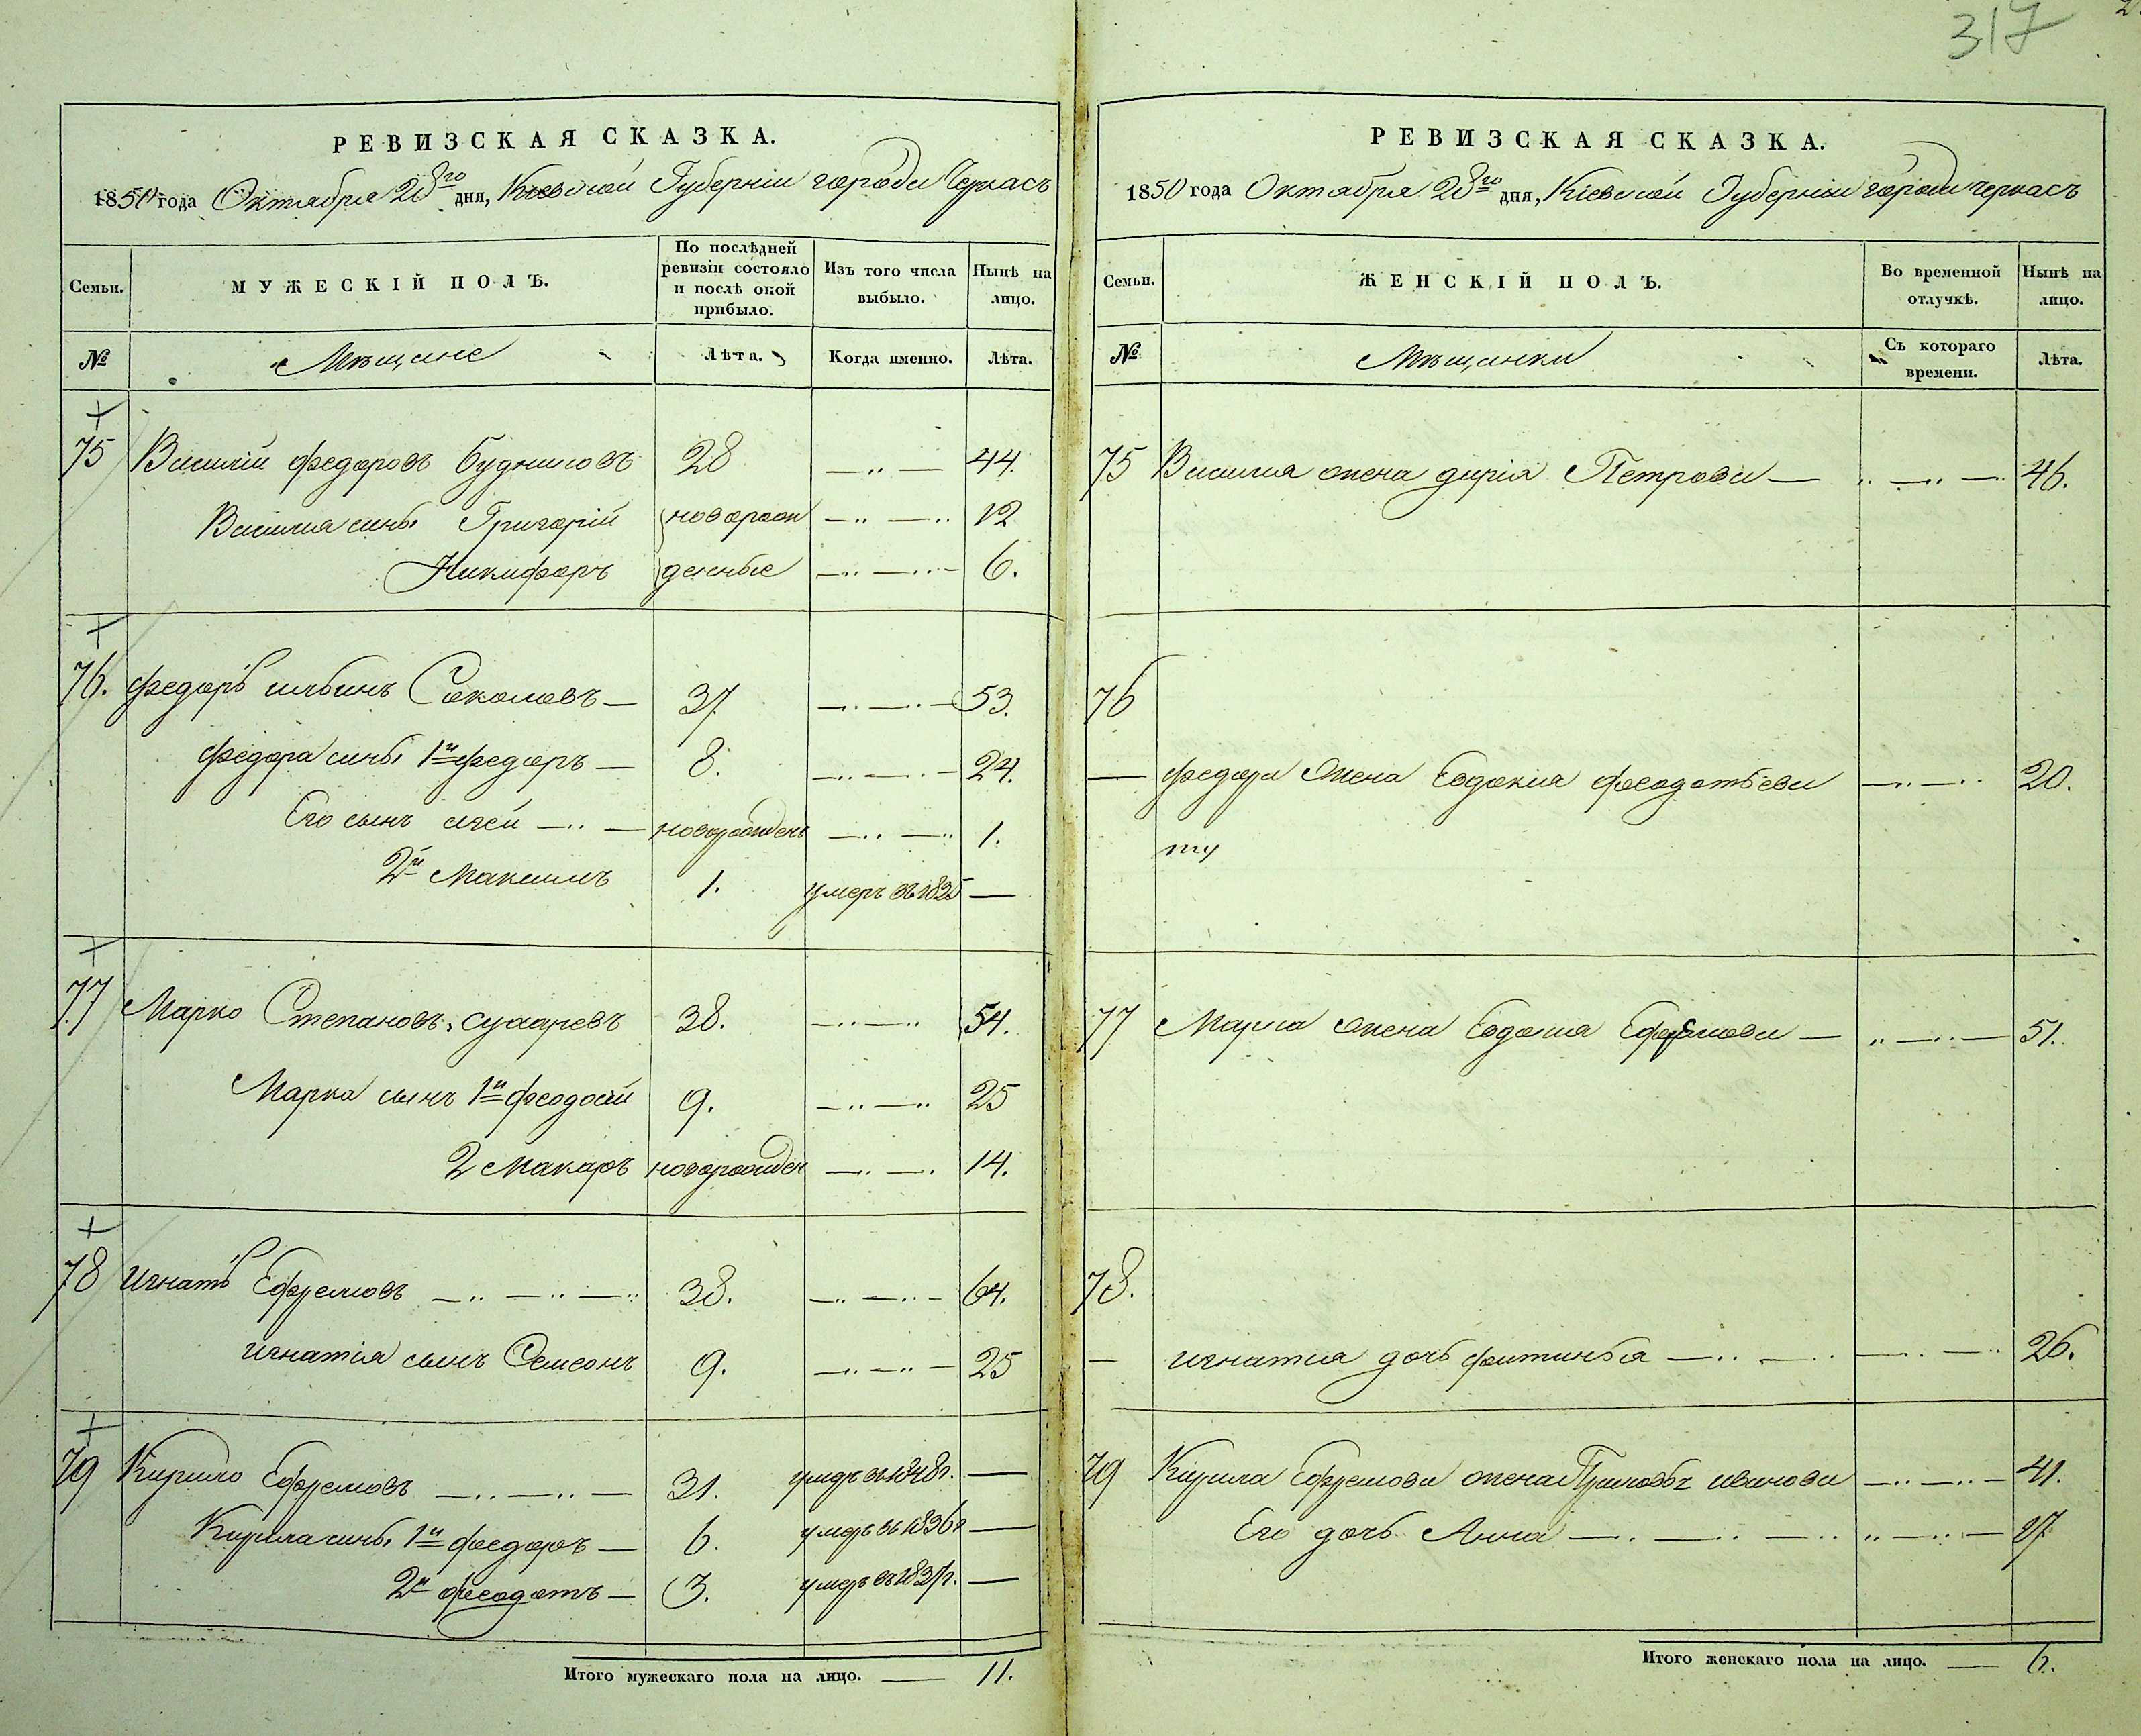 317
РЕВИЗСКАЯ СКАЗКА.
1850 года Октября 28го дня, Кіевской Губерніи города Черкасъ
Семьи.
МУЖЕСКІЙ ПОЛЪ.
По послѣдней ревизіи состояло и послѣ оной прибыло.
Изъ того числа выбыло.
Нынѣ на лицо.
№
Мѣщане
Лѣта.
Когда именно.
Лѣта.
75 Василій Федоровъ Будниковъ 28 — „ — 44.
Василія сынъ Григорій новорож — „ — „ 12
Никифоръ денные — „ — „ — 6.
76. Федоръ ильинъ Соколовъ — 37 — „ — „ — 53.
Федора сынъ 1й Федоръ — 8. — „ — „ — 24.
Его сынъ — „ — новорожденъ — „ — „ 1.
2й Максимъ 1. умеръ въ 1835 —
77 Марко Степановъ Сухаревъ 38. — „ — „ 54.
Марка сынъ 1й Феодосій 9. — „ — „ 25
2 Макаръ новорожден — „ — „ 14.
78 Игнатъ Ефремовъ — „ — „ — „ 38. — „ — „ — 64.
Игнатія сынъ Семеонъ 9. — „ — „ — 25
79 Кирило Ефремовъ — „ — „ — 31. умеръ въ 1848г. —
Кирила сынъ 1й Федоръ — 6. умеръ въ 1836г —
2й Феодотъ — 3. умеръ въ 1837г. —
Итого мужескаго пола на лицо. — 11.
РЕВИЗСКАЯ СКАЗКА.
1850 года Октября 28го дня, Кіевской Губерніи города Черкасъ
Семьи.
ЖЕНСКІЙ ПОЛЪ.
Во временной отлучкѣ.
Нынѣ на лицо.
№
Мѣщанки
Съ котораго времени.
Лѣта.
75 Василія жена дарія Петрова — „ — „ — „ 46.
76
— Федора Жена Евдокия Феодотьева — „ — „ 20.
77 Марка жена Евдокия Ефремова — „ — „ — 51.
78.
— игнатия дочь фитинья — „ — „ — „ — „ 26.
79 Кирила Ефремова жена иванова — „ — „ — 41.
Его дочь Анна — „ — „ — „ — „ — 17
Итого женскаго пола на лицо. — 6.